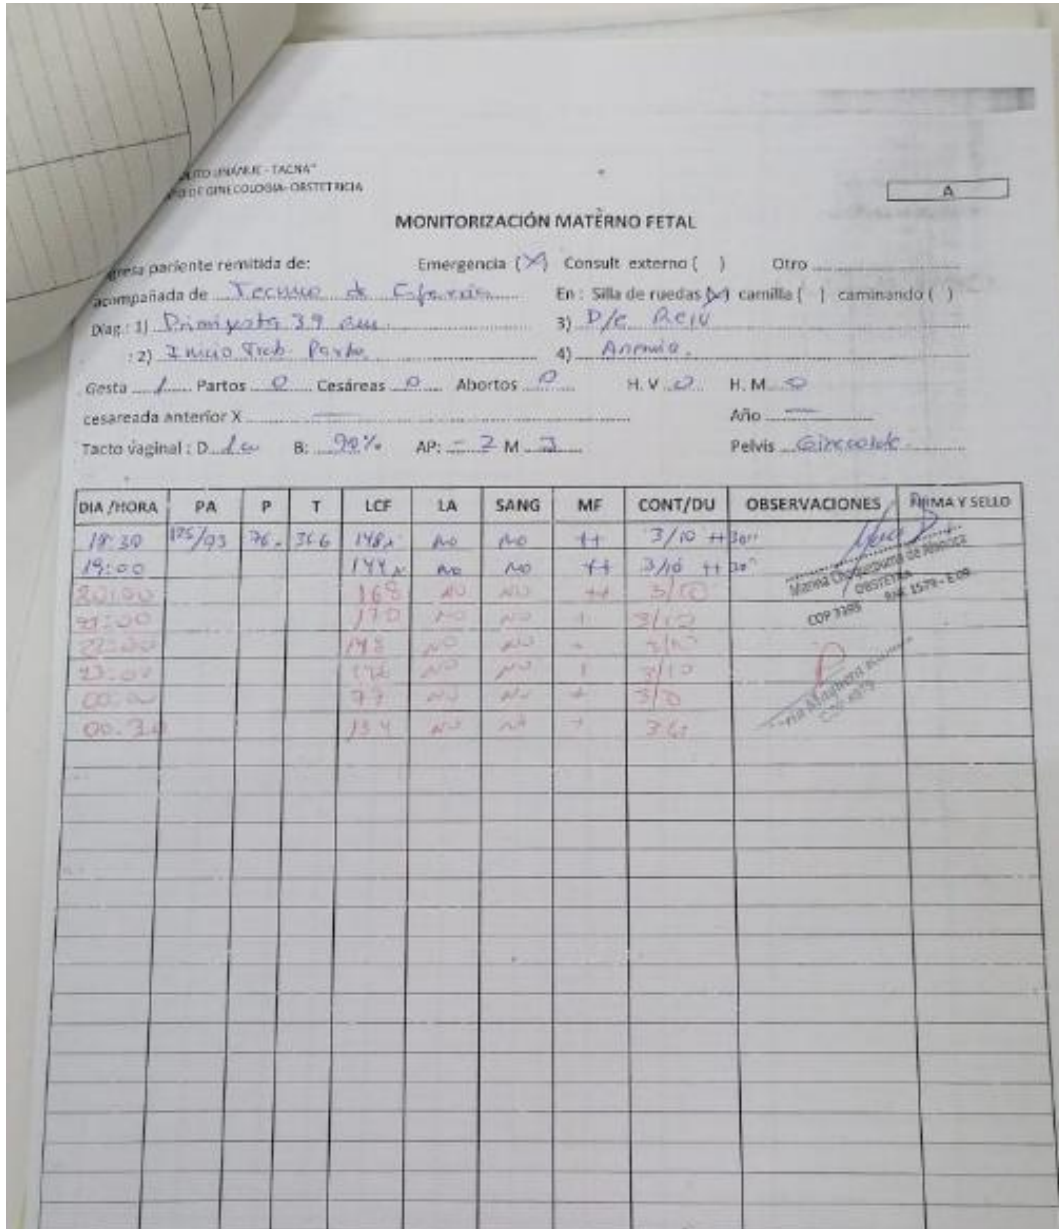 UNÁNUE - TACNA"
DE GINECOLOGIA- OBSTETRICIA
A
MONITORIZACIÓN MATERNO FETAL
paciente remitida de: Emergencia (X) Consult externo ( ) Otro
acompañada de Tecnico de En : Silla de ruedas (X) camilla ( ) caminando ( )
Diag.: 1) Primigesta 39 3) D/c RCIU
: 2) Inicio Trab Parto 4) Anemia.
Gesta 1 Partos 0 Cesáreas 0 Abortos 0 H. V 0 H. M. 0
cesareada anterior X — Año —
Tacto vaginal : D B: 90% AP: - 2 M Pelvis
DIA /HORA PA P T LCF LA SANG MF CONT/DU OBSERVACIONES FIRMA Y SELLO
18:30 /93 76. 36 6 148x No No ++ 3/10 ++ 30"
19:00 144x No No ++ 3/10 ++ 30"
20:00 168 NO NO ++ 3/10
21:00 170 NO NO + 3/10
22:00 148 NO NO 3/10
23:00 NO NO + 3/10
00:00 NO NO +
00:30 134 NO NO
Marina de
OBSTETRA
COP 3395 RNE 1579 - E.09